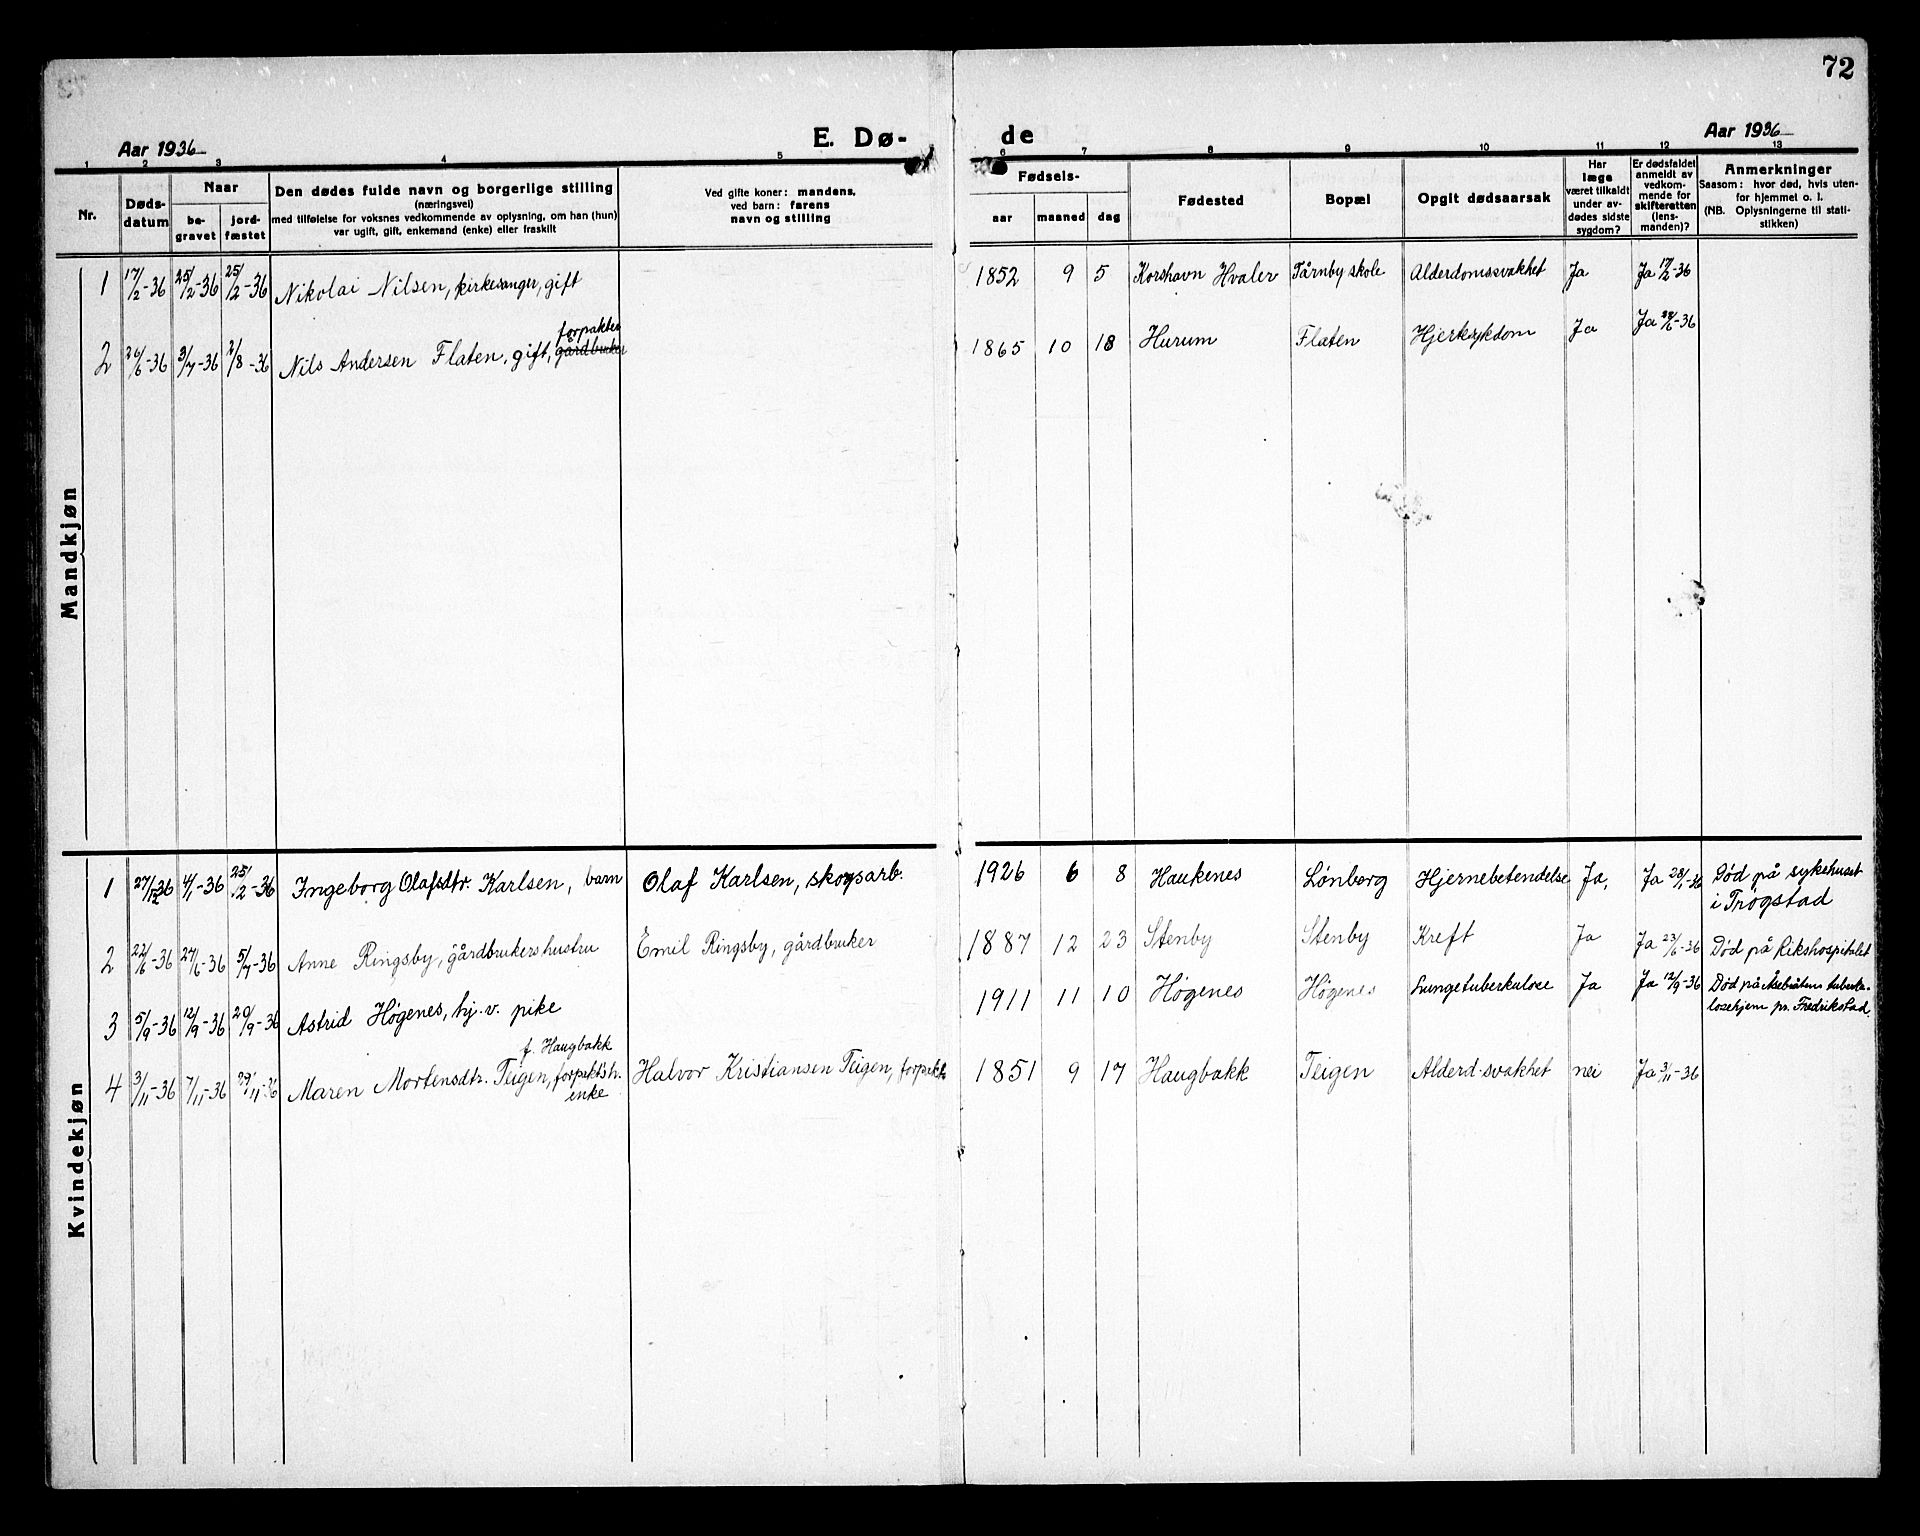 72
Aar 1936
E. Dø-
de
Aar 1936
1 2 3 4 5 6 7 8 9 10 11 12 13
Nr.
Døds-
datum
Naar
be-
gravet
jord-
fæstet
Den dødes fulde navn og borgerlige stilling
(næringsvei)
med tilføielse for voksnes vedkommende av oplysning, om han (hun)
var ugift, gift, enkemand (enke) eller fraskilt
Ved gifte koner: mandens,
ved barn: farens
navn og stilling
Fødsels-
aar maaned dag
Fødested
Bopæl
Opgit dødsaarsak
Har
læge
været tilkaldt
under av-
dødes sidste
sygdom?
Er dødsfaldet
anmeldt av
vedkom-
mende for
skifteretten
(lens-
manden)?
Anmerkninger
Saasom: hvor død, hvis uten-
for hjemmet o. l.
(NB. Oplysningerne til stati-
stikken)
Mandkjøn
1 17/2-36 25/2-36 25/2-36 Nikolai Nilsen, kirkesanger, gift 1852 9 5 Korshavn Hvaler Tårnby skole Alderdomssvakhet Ja Ja 17/2-36
forpakter
2 26/6-36 3/7-36 2/8-36 Nils Andersen Flaten, gift, gårdbruker 1865 10 18 Hurum Flaten Hjertesykdom Ja Ja -36
Kvindekjøn
1 27/12-36 4/1-36 25/12-36 Ingeborg Olafsdtr. Karlsen, barn Olaf Karlsen, skogsarb. 1926 6 8 Haukenes Lønborg Hjernebetendelse Ja, Ja 28/1-36 Død på sykehuset
i Trøgstad
2 22/6-36 27/6-36 5/7-36 Anne Ringsby, gårdbrukershustru Emil Ringsby, gårdbruker 1887 12 23 Stenby Stenby Kreft Ja Ja 23/6-36 Død på Rikshospitalet
3 5/9-36 12/9-36 20/9-36 Astrid Høgenes, hj. v. pike 1911 11 10 Høgenes Høgenes Lungetuberkulose Ja Ja 12/9-36 Død på tuberku-
losehjem pr. Fredrikstad.
f. Haugbakk
4 3/11-36 7/11-36 29/11-36 Maren Mortensdtr. Teigen, forpaktstr. Halvor Kristiansen Teigen, forpakt. 1851 9 17 Haugbakk Teigen Alderd. svakhet nei Ja 3/11-36
enke